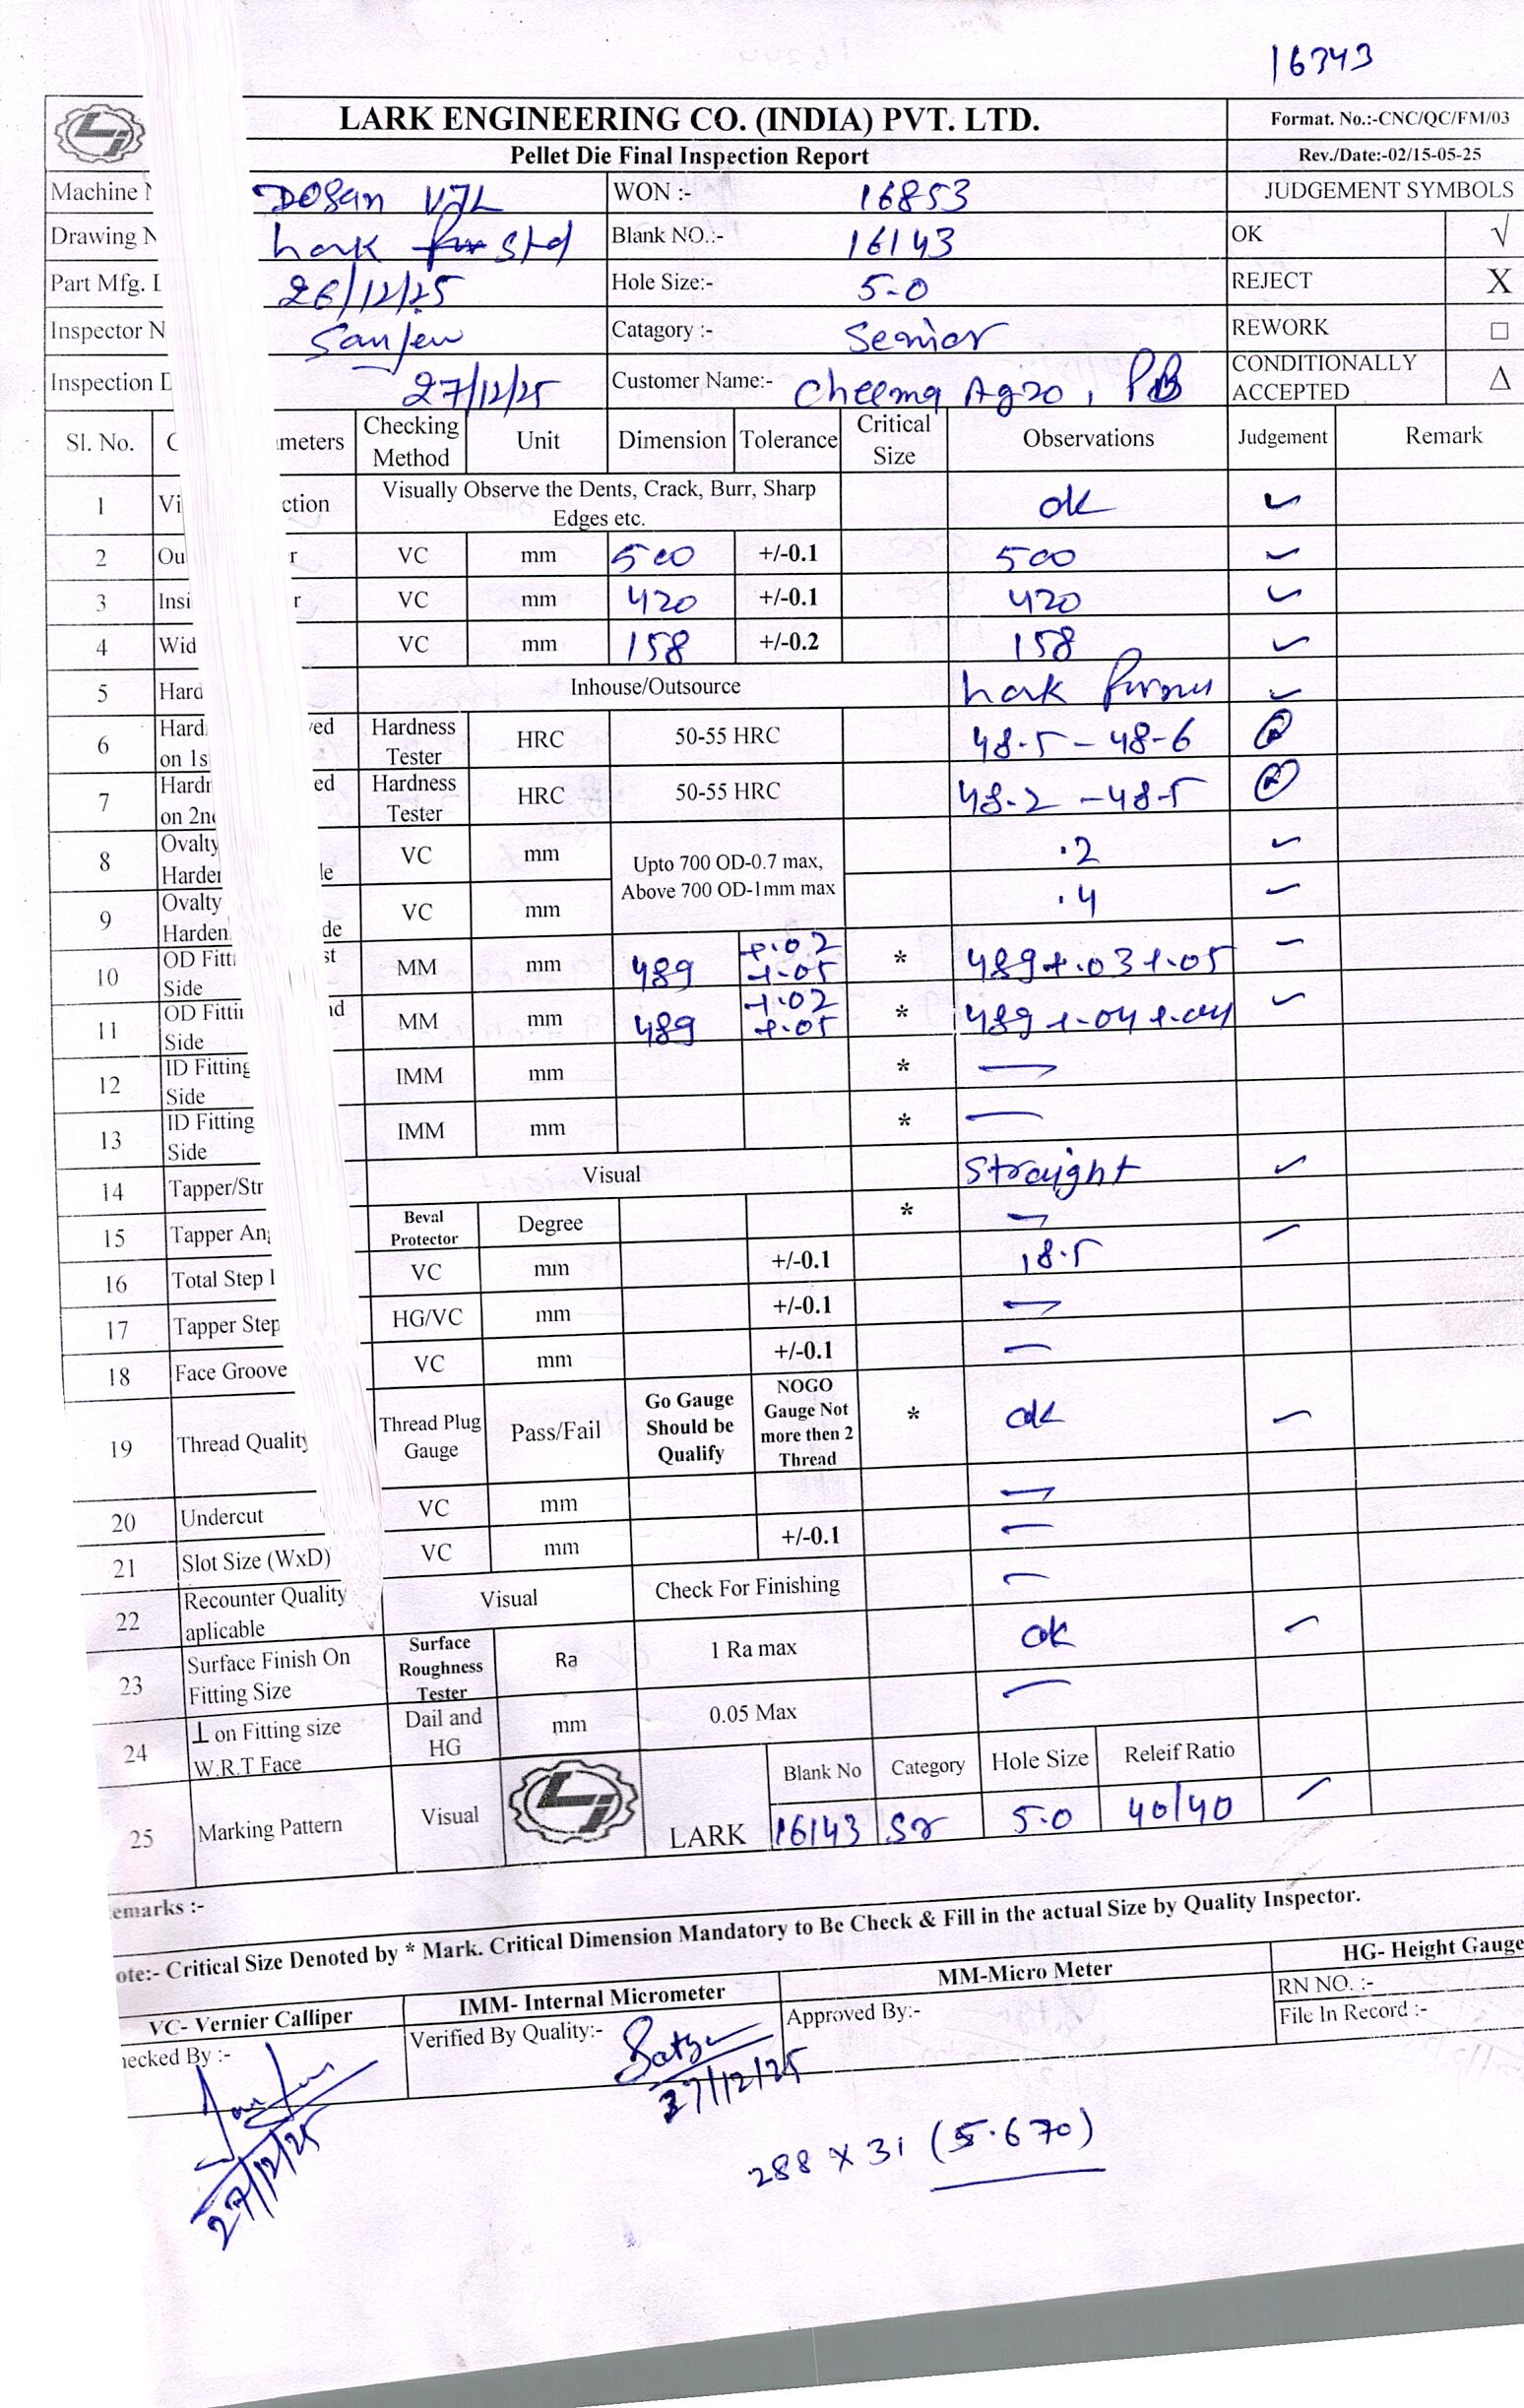 16343
LARK ENGINEERING CO. (INDIA) PVT. LTD. Format. No.:-CNC/QC/FM/03
Pellet Die Final Inspection Report Rev./Date:-02/15-05-25
Machine DOSan VTL WON :- 16853 JUDGEMENT SYMBOLS
Drawing N Lark Std Blank NO.:- 16143 OK √
Part Mfg. 26/12/25 Hole Size:- 5.0 REJECT X
Inspector N Sanjeev Catagory :- Senior REWORK □
Inspection 27/12/25 Customer Name:- Cheema Agro, PB CONDITIONALLY ACCEPTED Δ
Sl. No. C meters Checking Method Unit Dimension Tolerance Critical Size Observations Judgement Remark
1 Vi ction Visually Observe the Dents, Crack, Burr, Sharp Edges etc. ok ✓
2 Ou r VC mm 500 +/-0.1 500 ✓
3 Insi r VC mm 420 +/-0.1 420 ✓
4 Wid VC mm 158 +/-0.2 158 ✓
5 Hard Inhouse/Outsource Lark ✓
6 Hard ved on 1s Hardness Tester HRC 50-55 HRC 48.5 - 48.6
7 Hardn ed on 2n Hardness Tester HRC 50-55 HRC 48.2 - 48.5
8 Ovalty Harden le VC mm Upto 700 OD-0.7 max, Above 700 OD-1mm max .2 ✓
9 Ovalty Harden de VC mm .4 ✓
10 OD Fitti st Side MM mm 489 +.02 +.05 * 489 +.03 +.05 ✓
11 OD Fittin nd Side MM mm 489 +.02 +.05 * 489 +.04 +.04 ✓
12 ID Fitting Side IMM mm * —
13 ID Fitting Side IMM mm * —
14 Tapper/Str Visual Straight ✓
15 Tapper An Beval Protector Degree * —
16 Total Step VC mm +/-0.1 18.5 ✓
17 Tapper Step HG/VC mm +/-0.1 —
18 Face Groove VC mm +/-0.1 —
19 Thread Quality Thread Plug Gauge Pass/Fail Go Gauge Should be Qualify NOGO Gauge Not more then 2 Thread * ok ✓
20 Undercut VC mm —
21 Slot Size (WxD) VC mm +/-0.1 —
22 Recounter Quality aplicable Visual Check For Finishing —
23 Surface Finish On Fitting Size Surface Roughness Tester Ra 1 Ra max ok ✓
24 ⊥ on Fitting size W.R.T Face Dail and HG mm 0.05 Max —
25 Marking Pattern Visual LARK Blank No Category Hole Size Releif Ratio
16143 Sr 5.0 40/40 ✓
emarks :-
ote:- Critical Size Denoted by * Mark. Critical Dimension Mandatory to Be Check & Fill in the actual Size by Quality Inspector.
VC- Vernier Calliper IMM- Internal Micrometer MM-Micro Meter HG- Height Gauge
hecked By :- Verified By Quality:- Approved By:- RN NO. :-
File In Record :-
27/12/25 27/12/25
288 x 31 (5.670)